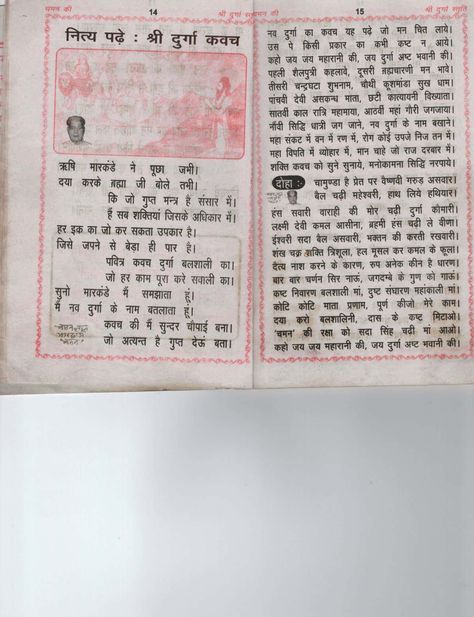 चमन की
14
श्री दुर्गा स्तुति
नित्य पढ़े : श्री दुर्गा कवच
ऋषि मारकंडे ने पूछा जभी।
दया करके ब्रह्मा जी बोले तभी।
कि जो गुप्त मन्त्र है संसार में।
हैं सब शक्तियां जिसके अधिकार में।
हर इक का जो कर सकता उपकार है।
जिसे जपने से बेड़ा ही पार है।
पवित्र कवच दुर्गा बलशाली का।
जो हर काम पूरा करे सवाली का।
सुनो मारकंडे मैं समझाता हूं।
मैं नव दुर्गा के नाम बतलाता हूं।
कवच की मैं सुन्दर चौपाई बना।
जो अत्यन्त है गुप्त देऊं बता।
चमन की
15
श्री दुर्गा स्तुति
नव दुर्गा का कवच यह पढ़े जो मन चित लाये।
उस पे किसी प्रकार का कभी कष्ट न आये।
कहो जय जय महारानी की, जय दुर्गा अष्ट भवानी की।
पहली शैलपुत्री कहलावे, दूसरी ब्रह्मचारणी मन भावे।
तीसरी चन्द्रघटा शुभनाम, चौथी कूशमांडा सुख धाम।
पांचवी देवी असकन्ध माता, छटी कात्यायनी विख्याता।
सातवीं काल रात्रि महामाया, आठवीं महां गौरी जगजाया।
नौंवी सिद्धि धात्री जग जाने, नव दुर्गा के नाम बखाने।
महा संकट में वन में रण में, रोग कोई उपजे निज तन में।
महा विपति में व्योहार में, मान चाहे जो राज दरबार में।
शक्ति कवच को सुने सुनाये, मनोकामना सिद्धि नरपाये।
दोहा : चामुण्डा है प्रेत पर वैष्णवी गरुड़ असवार।
बैल चढ़ी महेश्वरी, हाथ लिये हथियार।
हंस सवारी वाराही की मोर चढ़ी दुर्गा कौमारी।
लक्ष्मी देवी कमल आसीना, ब्रहमी हंस चढ़ी ले वीणा।
ईश्वरी सदा बैल असवारी, भक्तन की करती रखवारी।
शंख चक्र शक्ति त्रिशूला, हल मूसल कर कमल के फूला।
दैत्य नाश करने के कारण, रुप अनेक कीन है धारण।
बार बार चर्णन सिर नाऊं, जगदम्बे के गुण को गाऊं।
कष्ट निवारण बलशाली मां, दुष्ट संघारण महांकाली मां।
कोटि कोटि माता प्रणाम, पूर्ण कीजो मेरे काम।
दया करो बलशालिनी, दास के कष्ट मिटाओ।
'चमन' की रक्षा को सदा सिंह चढ़ी मां आओ।
कहो जय जय महारानी की, जय दुर्गा अष्ट भवानी की।